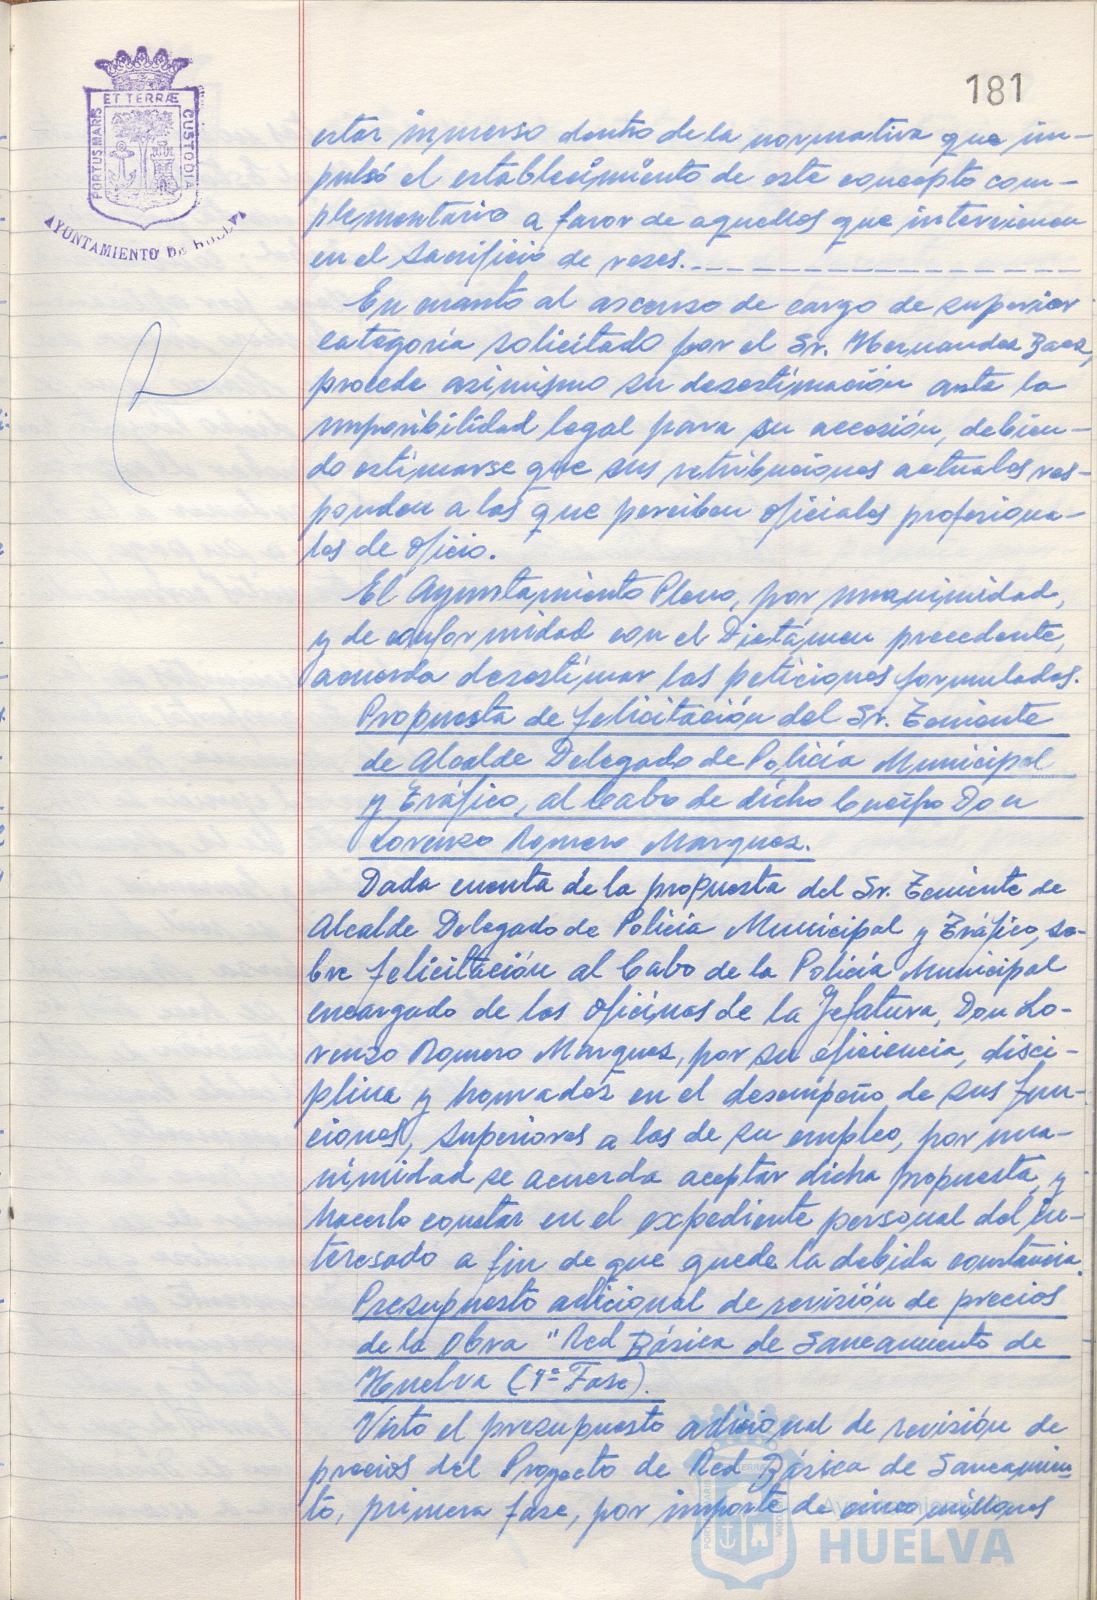 181
ET TERRÆ
PORTUS MARIS
CUSTODIA
AYUNTAMIENTO DE HUELVA
estar inmerso dentro de la normativa que im-
pulsó el establecimiento de este concepto com-
plementario a favor de aquellos que intervienen
en el sacrificio de reses.
En cuanto al ascenso de cargo de superior
categoría solicitado por el Sr. Hernandez Baez,
procede asimismo su desestimación ante la
imposibilidad legal para su accesión, debien-
do estimarse que sus retribuciones actuales res-
ponden a las que perciben oficiales profesiona-
les de oficio.
El Ayuntamiento Pleno, por unanimidad,
y de conformidad con el Dictámen precedente,
acuerda desestimar las peticiones formuladas.
Propuesta de felicitación del Sr. Teniente
de Alcalde Delegado de Policía Municipal
y Tráfico, al Cabo de dicho Cuerpo Don
Lorenzo Romero Marquez.
Dada cuenta de la propuesta del Sr. Teniente de
Alcalde Delegado de Policia Municipal y Tráfico, so-
bre felicitación al Cabo de la Policía Municipal
encargado de las oficinas de la Jefatura, Don Lo-
renzo Romero Marquez, por su eficiencia, disci-
plina y honradez en el desempeño de sus fun-
ciones, superiores a las de su empleo, por una-
nimidad se acuerda aceptar dicha propuesta, y
hacerlo constar en el expediente personal del in-
teresado a fin de que quede la debida constancia.
Presupuesto adicional de revisión de precios
de la obra "Red Básica de Saneamiento de
Huelva (1ª Fase).
Visto el presupuesto adicional de revisión de
precios del Proyecto de Red Básica de Saneamien
to, primera fase, por importe de cinco millones
Ayuntamiento de
HUELVA